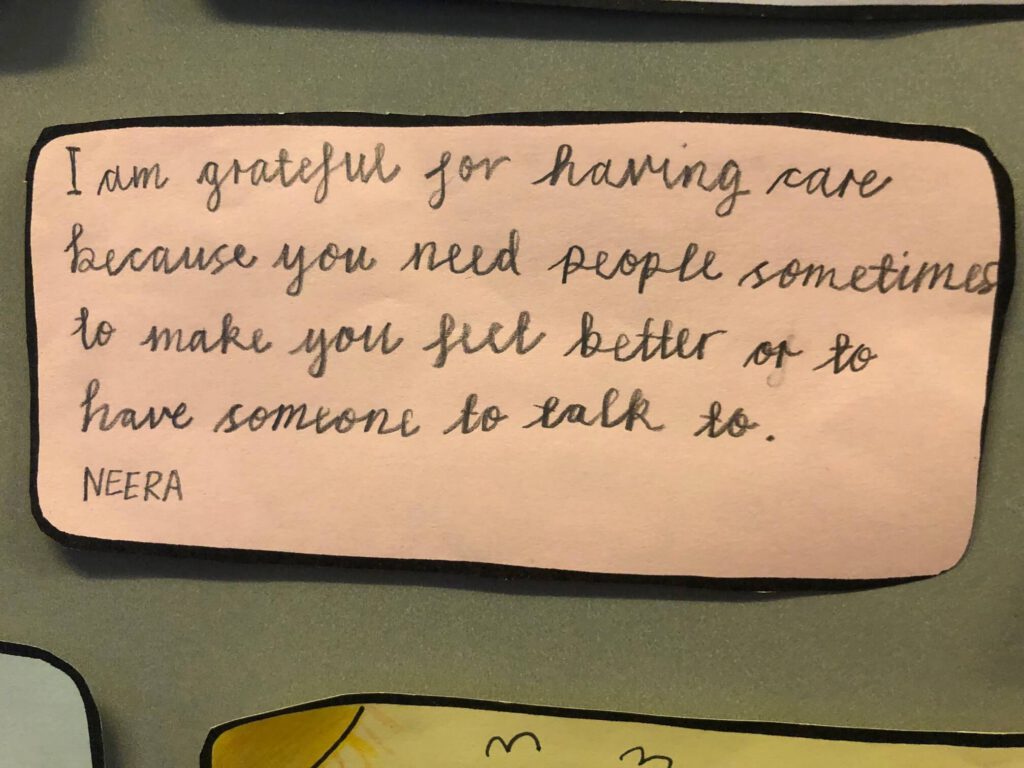 I am grateful for having care
because you need people sometimes
to make you feel better or to
have someone to talk to.
NEERA